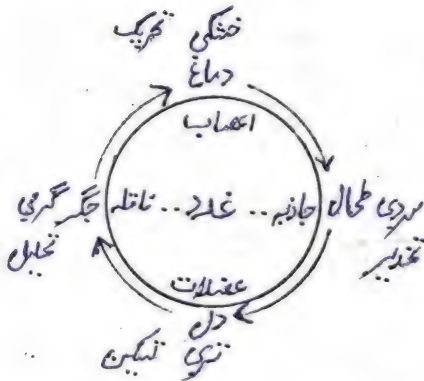 خشکی تحریک
دماغ
اعصاب
سردی طحال جاذبہ .. غدد ... ناقلہ جگر گرمی
تخدیر تحلیل
عضلات
دل
تری تسکین